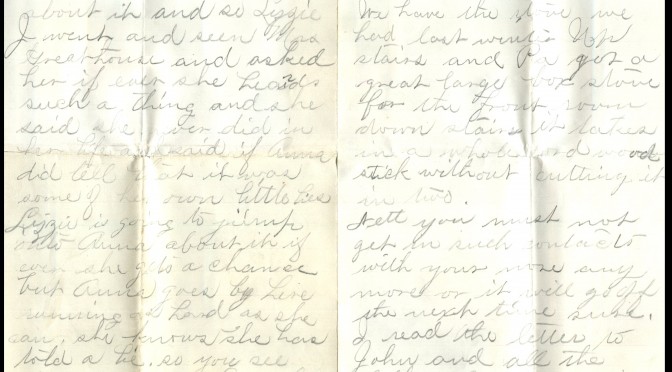 about it and so Lizzie
I went and seen Mrs
Greathouse and asked
her if ever she heard
such a thing and she
said she ever did in
her life and said if Anna
did tell that it was
some of her own little lies
Lizzie is going to jump
onto Anna about it if
ever she gets a chance
but Anna goes by here
running as hard as she
can, she knows she has
told a lie. so you see
We have the stove we
had last winter Up
stairs and Pa got a
great large box stove
for the front room
down stairs it takes
in a whole cord wood
stick without cutting it
in two.
Nett you must not
get in such contacts
with your nose any
more or it will go off
the next time sure.
I read the letter to
John and all the